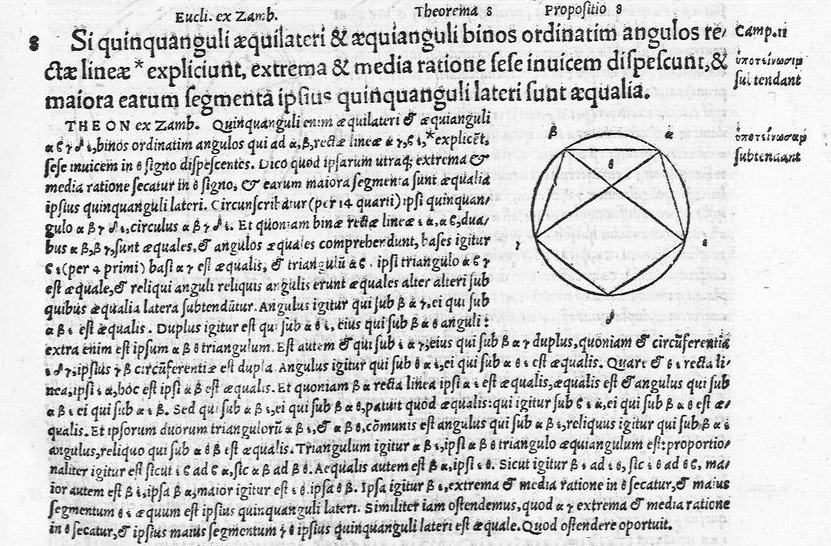 Eucli. ex Zamb. Theorema 8 Propositio 8
8 Si quinquanguli æquilateri & æquianguli binos ordinatim angulos re/ Camp.11
ctæ lineæ * expliciunt, extrema & media ratione sese inuicem dispescunt, & ὑποτείνωσιμ
maiora earum segmenta ipsius quinquanguli lateri sunt æqualia. subtendant
THEON ex Zamb. Quinquanguli enim æquilateri & æquianguli
α ϐ γ δ ε, binos ordinatim angulos qui ad α, β, rectæ lineæ α γ, ϐ ε, * explicēt, ὑποτείνωσαμ
sese inuicem in θ signo dispescentes. Dico quod ipsarum utraq; extrema & subtendant
media ratione secatur in θ signo, & earum maiora segmenta sunt æqualia
ipsius quinquanguli lateri. Circunscribatur (per 14 quarti) ipsi quinquan/
gulo α β γ δ ε, circulus α β γ δ ε. Et quoniam binæ rectæ lineæ ε α, α ϐ, dua/
bus α β, β γ, sunt æquales, & angulos æquales comprehendunt, basis igitur
ϐ ε (per 4 primi) basi α γ est æqualis, & triangulū α ϐ ε ipsi triangulo α ϐ γ
est æquale, & reliqui anguli reliquis angulis erunt æquales alter alteri sub
quibus æqualia latera subtendūtur. Angulus igitur qui sub β α γ, ei qui sub
α β ε est æqualis. Duplus igitur est qui sub α θ ε, eius qui sub β α θ anguli:
extra enim est ipsum α β θ triangulum. Est autem & qui sub ε α γ, eius qui sub β α γ duplus, quoniam & circūferentia
ε δ γ, ipsius γ β circūferentiæ est dupla. Angulus igitur qui sub θ α ε, ei qui sub α θ ε est æqualis. Quare & θ ε recta li/
nea, ipsi ε α, hoc est ipsi α β est æqualis. Et quoniam β α recta linea ipsi α ε est æqualis, æqualis est & angulus qui sub
α β ε ei qui sub α ε β. Sed qui sub α β ε, ei qui sub β α θ, patuit quod æqualis: qui igitur sub ϐ ε α, ei qui sub β α θ est æ/
qualis. Et ipsorum duorum triangulorū α β ε, & α β θ, cōmunis est angulus qui sub α β ε, reliquus igitur qui sub β α ε
angulus, reliquo qui sub α θ β est æqualis. Triangulum igitur α β ε, ipsi α β θ triangulo æquiangulum est: proportio/
naliter igitur est sicut ε ϐ ad ϐ α, sic α β ad β θ. Aequalis autem est β α, ipsi ε θ. Sicut igitur β ε ad ε θ, sic ε θ ad θ ϐ, ma/
ior autem est β ε, ipsa β α, maior igitur est ε θ ipsa θ β. Ipsa igitur β ε, extrema & media ratione in θ secatur, & maius
segmentum θ ε æquum est ipsius quinquanguli lateri. Similiter iam ostendemus, quod α γ extrema & media ratione
in θ secatur, & ipsius maius segmentum γ θ ipsius quinquanguli lateri est æquale. Quod ostendere oportuit.
β α
θ
γ ε
δ